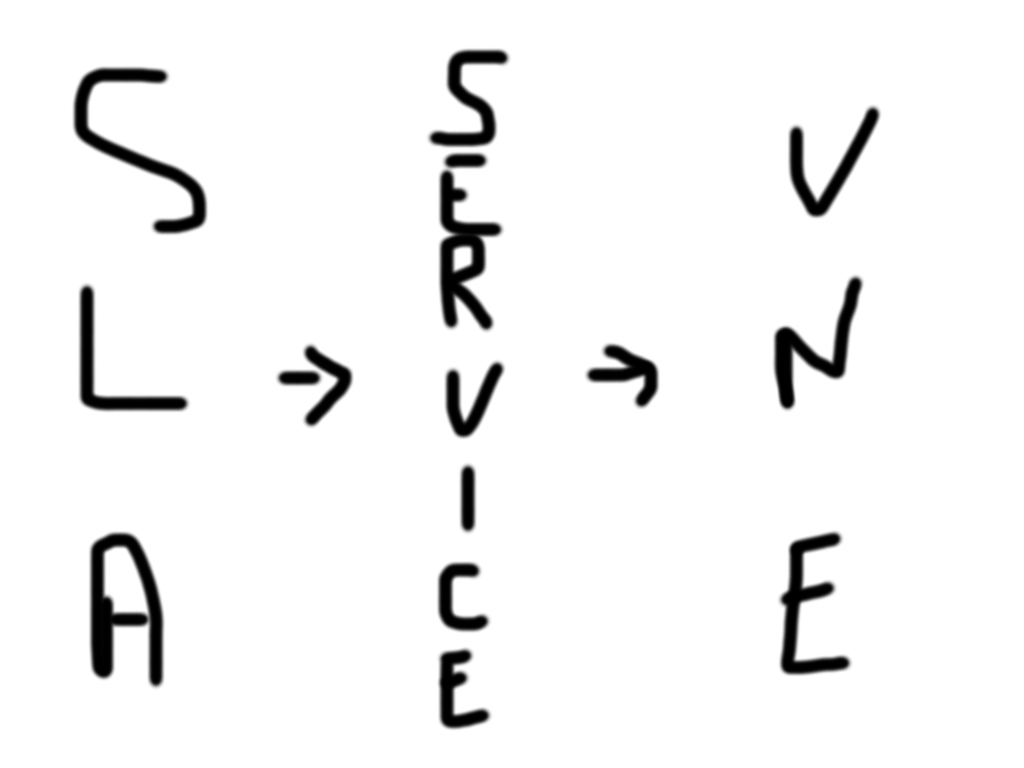 SLA
→
SERVICE
→
VNE